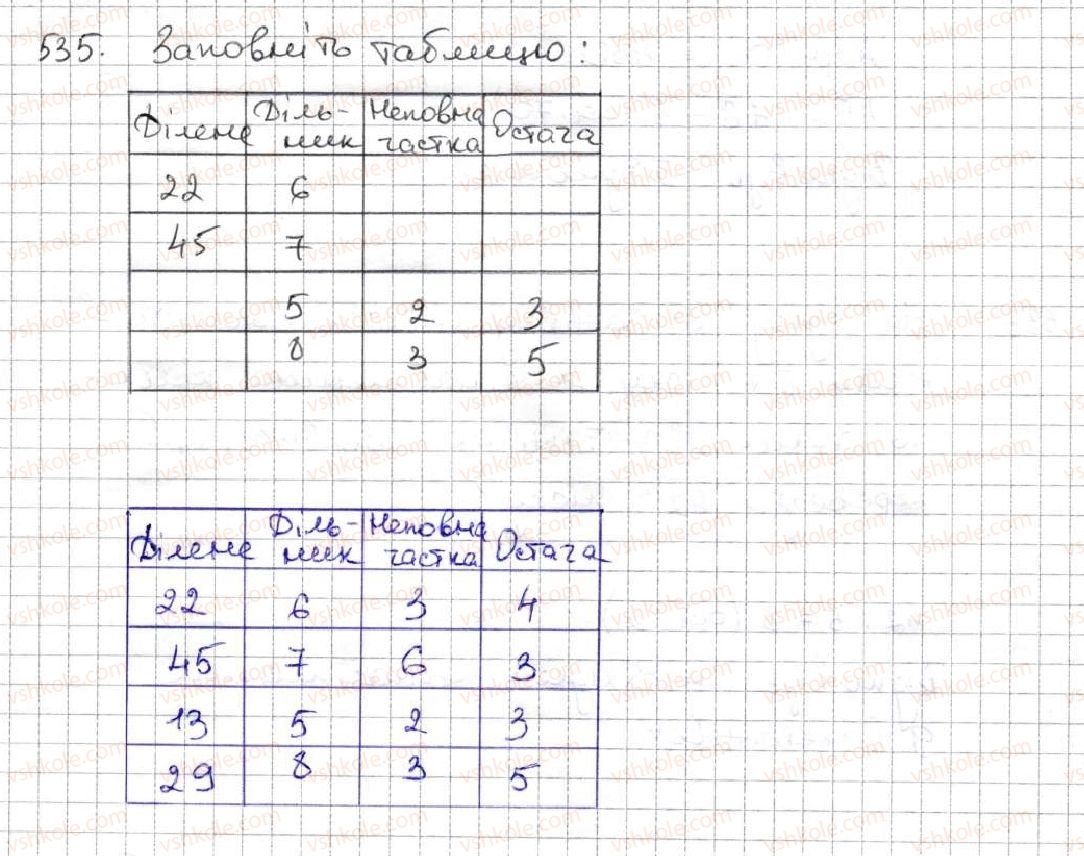 535. Заповніть таблицю:
Ділене Діль- Неповна Остача
ник частка
22 6
45 7
5 2 3
8 3 5
Ділене Діль- Неповна Остача
ник частка
22 6 3 4
45 7 6 3
13 5 2 3
29 8 3 5
vshkole.com